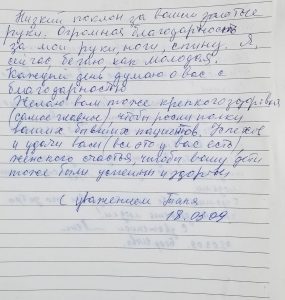 Низкий поклон за ваши золотые
руки. Огромная благодарность
за мои руки, ноги, спину. Я,
сейчас бегаю, как молодая.
Каждый день думаю о вас с
благодарностью
Желаю вам тоже крепкого здоровья
(самое главное), чтобы росли полку
ваших бывших пациентов. Успехов
и удачи вам (все это у вас есть),
женского счастья, чтобы ваши дети
тоже были успешны и здоровы
С уважением Таня
18.03.09